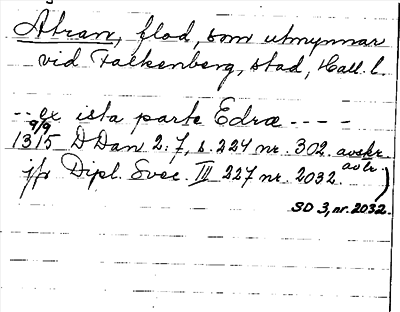 Ätran, flod, som utmynnar
vid Falkenberg, stad, Hall. l.
-- ex ista parte Edræ ----
9/9
1315 DDan 2:7, s. 224 nr. 302. avskr.
avtr.)
jfr Dipl. Svec. III 227 nr. 2032.
SD 3, nr. 2032.